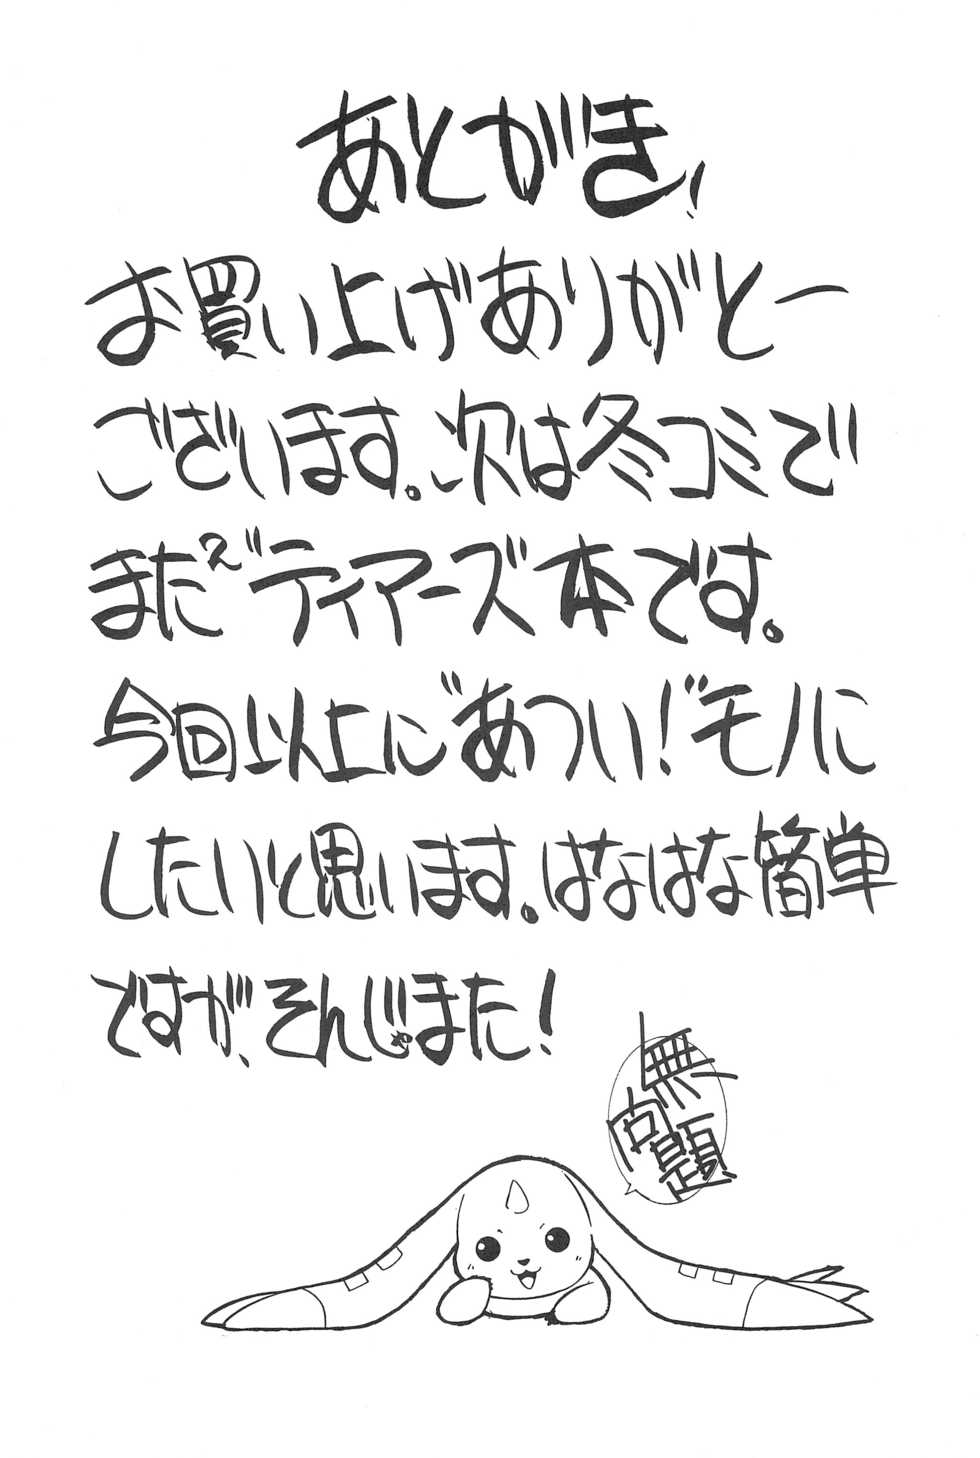 あとがき!
お買い上げありがとー
ございます。次は冬コミで
まだ"ティアーズ本です。
今回以上に"あつい!"モノに
したいと思います。はなはな簡単
ですが、そんじゃまた!
無
問題